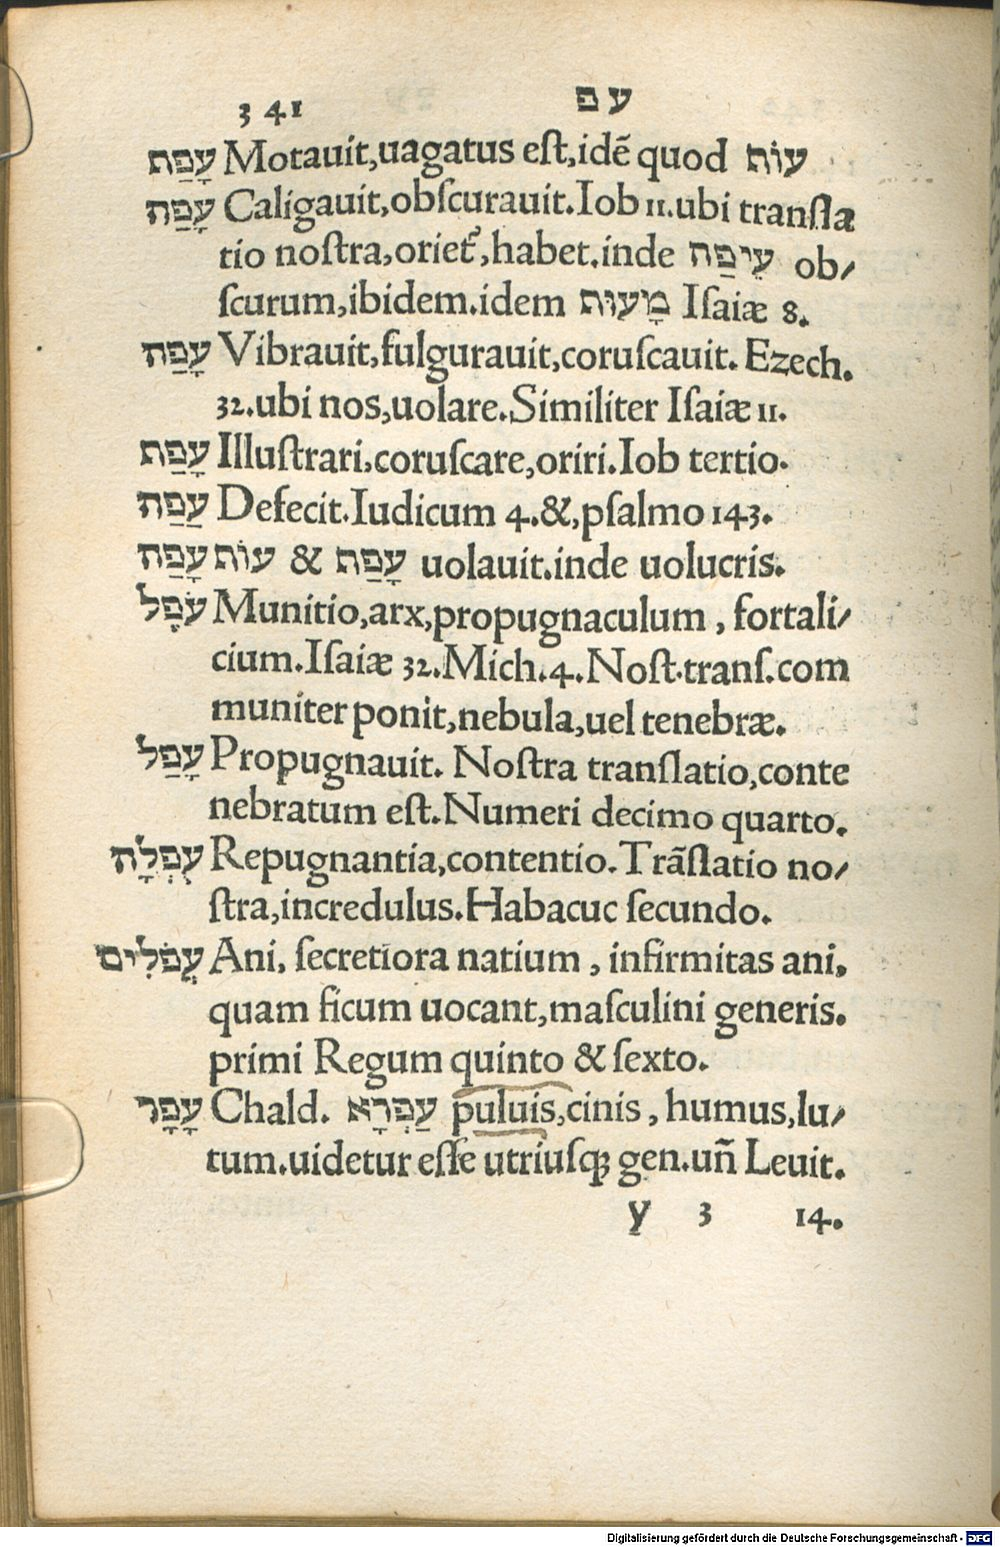 341 עפ
עָפַת Motauit,uagatus est,idē quod עוֹת
עָפַח Caligauit,obscurauit.Iob 11.ubi transla
tio nostra,oriet᷑,habet.inde עֵיפַח ob/
scurum,ibidem.idem מָעוּת Isaiæ 8.
עָפַח Vibrauit,fulgurauit,coruscauit. Ezech.
32.ubi nos,uolare.Similiter Isaiæ 11.
עָפַת Illustrari,coruscare,oriri.Iob tertio.
עָפַח Defecit.Iudicum 4.&,psalmo 143.
עָפַח עוֹת & עָפַת uolauit.inde uolucris.
עֹפֶל Munitio,arx,propugnaculum, fortali/
cium.Isaiæ 32.Mich.4.Nost.trans.com
muniter ponit,nebula,uel tenebræ.
עָפַל Propugnauit. Nostra translatio,conte
nebratum est.Numeri decimo quarto.
עֻפְלָה Repugnantia,contentio.Trāslatio no/
stra,incredulus.Habacuc secundo.
עֳפֹלִים Ani, secretiora natium, infirmitas ani,
quam ficum uocant,masculini generis.
primi Regum quinto & sexto.
עָפָר Chald. עַפְרָא puluis,cinis, humus,lu/
tum.uidetur esse utriusqꝫ gen.uñ Leuit.
y 3 14.
Digitalisierung gefördert durch die Deutsche Forschungsgemeinschaft - DFG